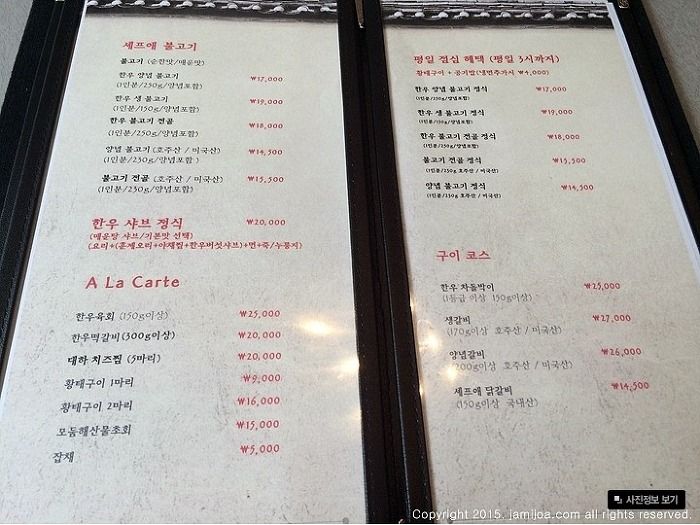 셰프애 불고기
불고기 (순한맛/매운맛)
한우 양념 불고기 ₩17,000
(1인분/250g/양념포함)
한우 생 불고기 ₩19,000
(1인분/150g/양념포함)
한우 불고기 전골 ₩18,000
(1인분/250g/양념포함)
양념 불고기 (호주산 / 미국산) ₩14,500
(1인분/230g/양념포함)
불고기 전골 (호주산 / 미국산) ₩15,500
(1인분/230g/양념포함)
한우 샤브 정식 ₩20,000
(매운탕 샤브/기본맛 선택)
(요리+(훈제오리+야채찜+한우버섯샤브)+면+죽/누룽지)
A La Carte
한우육회 (150g이상) ₩25,000
한우떡갈비 (300g이상) ₩20,000
대하 치즈찜 (5마리) ₩20,000
황태구이 1마리 ₩9,000
황태구이 2마리 ₩16,000
모둠해산물초회 ₩15,000
잡채 ₩5,000
평일 점심 혜택 (평일 3시까지)
황태구이 + 공기밥(냉면추가시 ₩4,000)
한우 양념 불고기 정식 ₩17,000
(1인분/250g/양념포함)
한우 생 불고기 정식 ₩19,000
(1인분/150g/양념포함)
한우 불고기 전골 정식 ₩18,000
(1인분/250g/양념포함)
불고기 전골 정식 ₩15,500
(1인분/230g 호주산 / 미국산)
양념 불고기 정식 ₩14,500
(1인분/230g 호주산 / 미국산)
구이 코스
한우 차돌박이 ₩25,000
(1등급 이상 150g이상)
생갈비 ₩27,000
(170g이상 호주산 / 미국산)
양념갈비 ₩26,000
(200g이상 호주산 / 미국산)
셰프애 닭갈비 ₩14,500
(150g이상 국내산)
사진정보 보기
Copyright 2015. jamijoa.com all rights reserved.